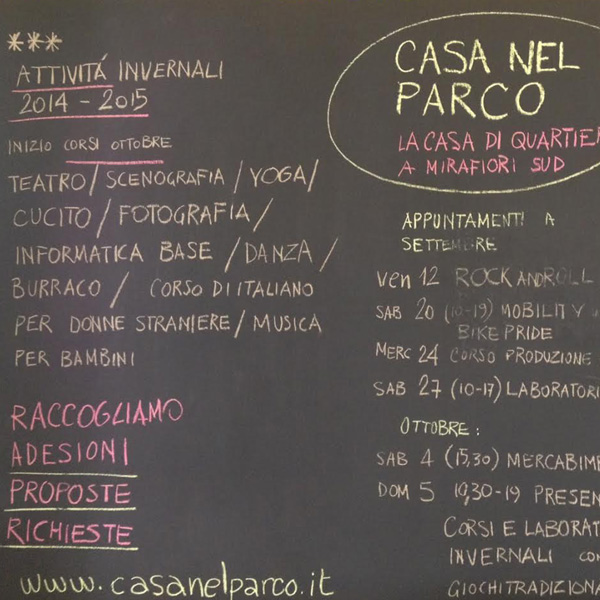 ***
ATTIVITÁ INVERNALI
2014 - 2015
INIZIO CORSI OTTOBRE
TEATRO / SCENOGRAFIA / YOGA /
CUCITO / FOTOGRAFIA /
INFORMATICA BASE / DANZA /
BURRACO / CORSO DI ITALIANO
PER DONNE STRANIERE / MUSICA
PER BAMBINI
RACCOGLIAMO
ADESIONI
PROPOSTE
RICHIESTE
www.casanelparco.it
CASA NEL
PARCO
LA CASA DI QUARTIER
A MIRAFIORI SUD
APPUNTAMENTI A
SETTEMBRE
Ven 12 ROCK AND ROLL
SAB 20 (10-19) MOBILITY
BIKE PRIDE
MERC 24 CORSO PRODUZIONE
SAB 27 (10-17) LABORATORI
OTTOBRE:
SAB 4 (15,30) MERCABIMB
DOM 5 19,30-19 PRESEN
CORSI E LABORAT
INVERNALI CON
GIOCHI TRADIZIONA